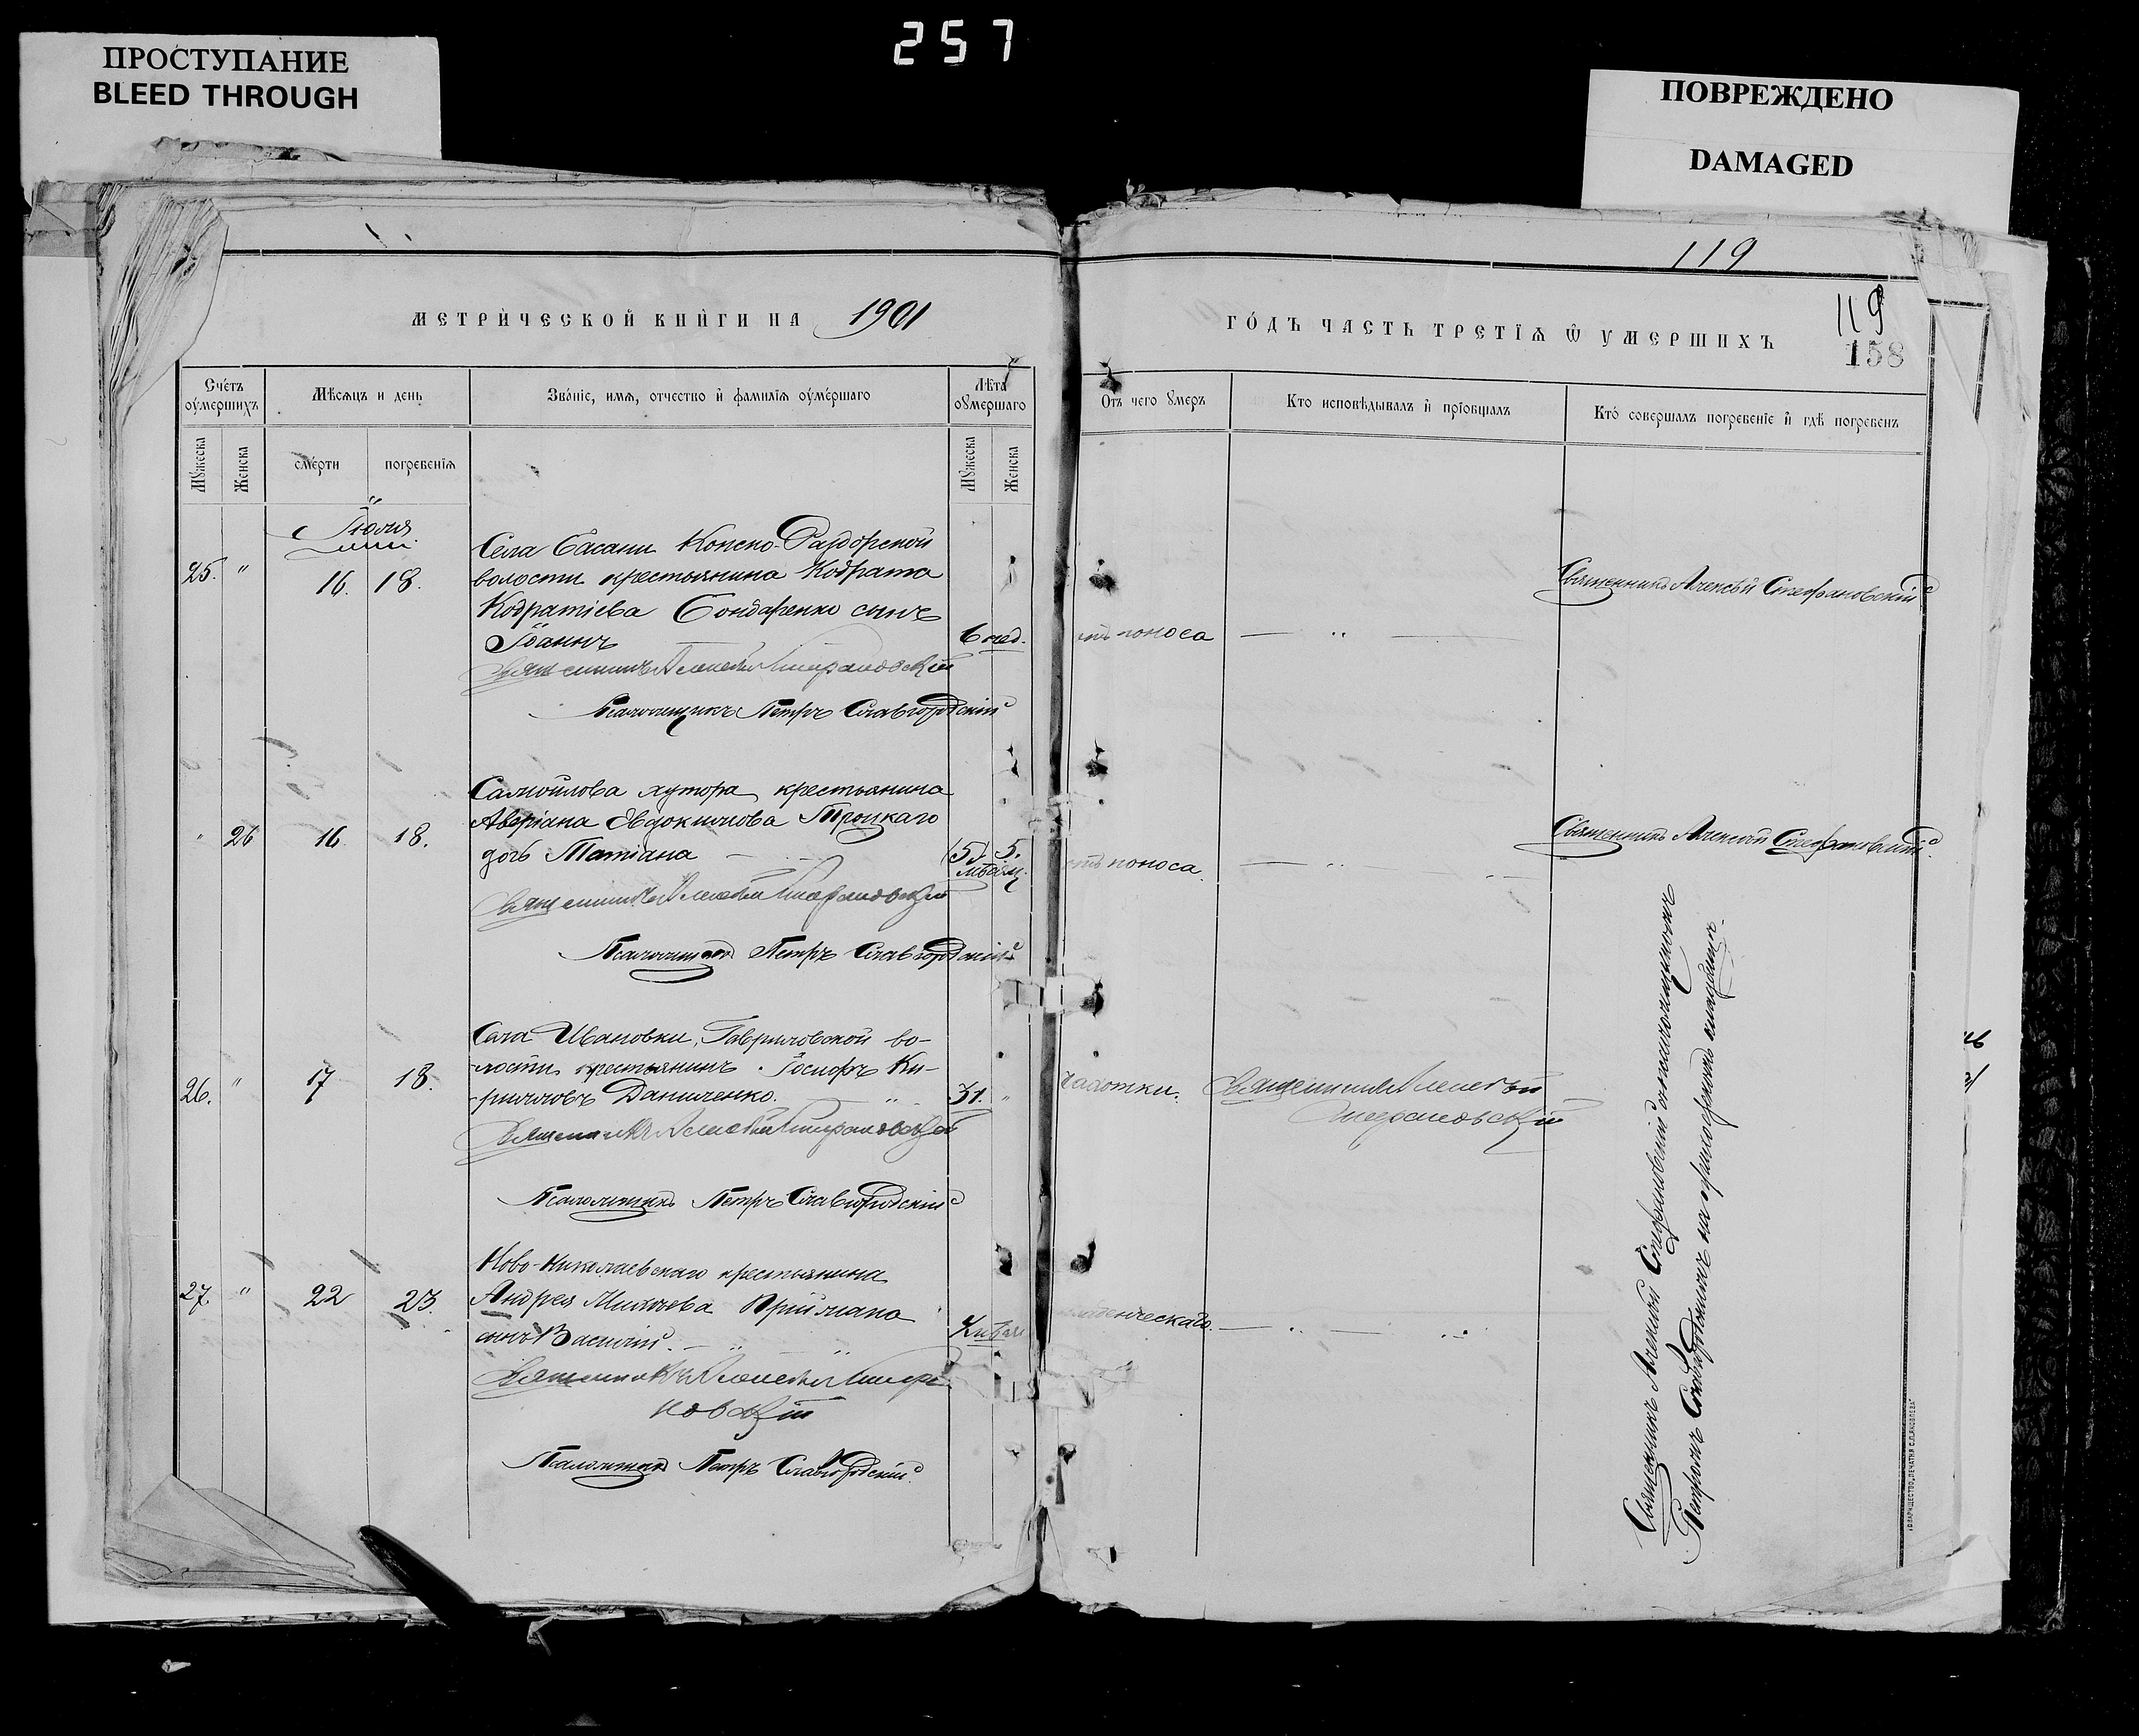 257
ПРОСТУПАНИЕ
BLEED THROUGH
ПОВРЕЖДЕНО
DAMAGED
119
МЕТРИЧЕСКОЙ КНИГИ НА 1901
ГОДЪ ЧАСТЬ ТРЕТІѦ Ѿ УМЕРШИХЪ
119
158
Счетъ оумершихъ
Мѣсѧцъ и день
Званіе, имѧ, отчество и фамиліѧ оумершаго
Лѣта оумершаго
Отъ чего умеръ
Кто исповѣдывалъ и пріобщалъ
Кто совершалъ погребеніе и гдѣ погребенъ
Мужеска
Женска
смерти
погребеніѧ
Мужеска
Женска
Іюля
25. " 16. 18.
Села Басани Конско-Раздорской
волости крестьянина Кодрата
Кодратіева Бондаренко сынъ
Іоаннъ
6 нед.
отъ поноса
Священникъ Алексѣй Стефановскій
Священникъ Алексѣй Стефановскій
Псаломщикъ Петръ Славгородскій
" 26 16 18.
Самойлова хутора крестьянина
Аверіана Евдокимова Троцкаго
дочь Татіана
5. мѣсяц.
отъ поноса.
Священникъ Алексѣй Стефановскій
Священникъ Алексѣй Стефановскій
Псаломщикъ Петръ Славгородскій
26. " 17 18.
Села Ивановки, Гавриловской во-
лости крестьянинъ Іосифъ Ки-
рилловъ Даниленко.
31. "
чахотки.
Священникъ Алексѣй
Стефановскій
Священникъ Алексѣй Стефановскій
Псаломщикъ Петръ Славгородскій
27. " 22 23.
Ново-Николаевскаго крестьянина
Андрея Приймака
сынъ Василій.
младенческаго.
Священникъ Алексѣй Стефа
новскій
Псаломщикъ Петръ Славгородскій
Священникъ Алексѣй Стефановскій съ псаломщикомъ
Петромъ Славгородскимъ на приходскомъ кладбищѣ.